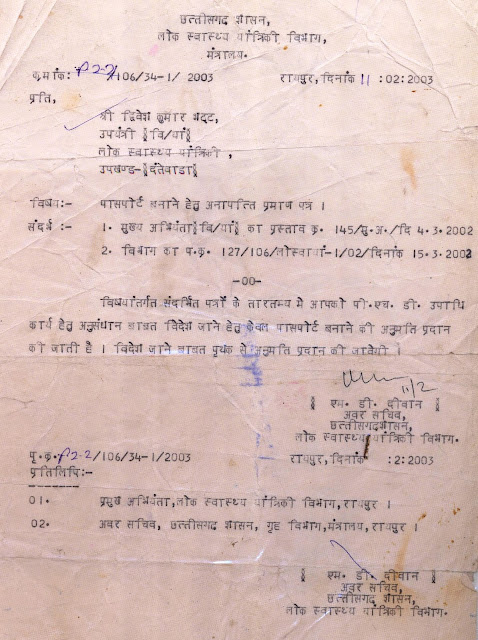 छत्तीसगढ़ शासन,
लोक स्वास्थ्य यांत्रिकी विभाग,
मंत्रालय.
क्रमांक: /106/34-1/ 2003 रायपुर, दिनांक 11 :02:2003
प्रति,
श्री द्विवेश कुमार भट्ट,
उपयंत्री (वि/यां)
लोक स्वास्थ्य यांत्रिकी,
उपखण्ड-(दंतेवाडा)
विषय:- पासपोर्ट बनाने हेतु अनापत्ति प्रमाण पत्र ।
संदर्भ :- 1. मुख्य अभियंता(वि/यां) का प्रस्ताव क्र. 145/मु.अ./दि 4.3.2002
2. विभाग का प.क्र. 127/106/लोस्वायां-1/02/दिनांक 15.3.2002
-00-
विषयांतर्गत संदर्भित पत्रों के तारतम्य में आपको पी.एच. डी. उपाधि
कार्य हेतु अनुसंधान बाबत विदेश जाने हेतु केवल पासपोर्ट बनाने की अनुमति प्रदान
की जाती है । विदेश जाने बाबत पृथक से अनुमति प्रदान की जावेगी ।
11/2
( एम. डी. दीवान )
अवर सचिव,
छत्तीसगढ़शासन,
लोक स्वास्थ्य यांत्रिकी विभाग.
पृ.क्र. /106/34-1/2003 रायपुर, दिनांक :2:2003
प्रतिलिपि:-
01. प्रमुख अभियंता,लोक स्वास्थ्य यांत्रिकी विभाग,रायपुर ।
02. अवर सचिव, छत्तीसगढ़ शासन, गृह विभाग,मंत्रालय,रायपुर ।
( एम. डी. दीवान )
अवर सचिव,
छत्तीसगढ़ शासन,
लोक स्वास्थ्य यांत्रिकी विभाग.